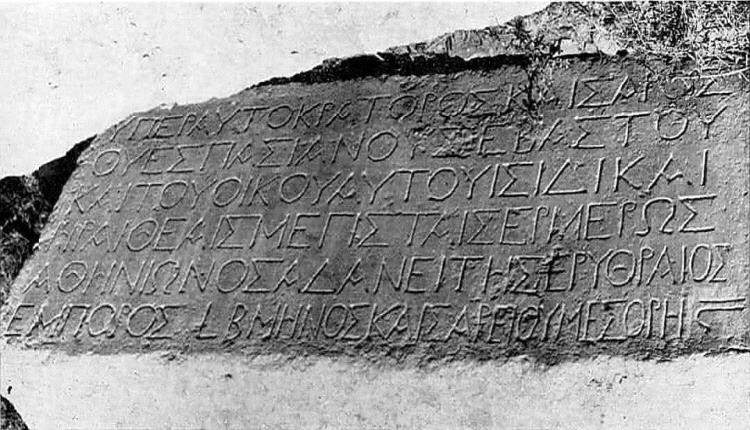 ΥΠΕΡΑΥΤΟΚΡΑΤΟΡΟΣΚΑΙΣΑΡΟΣ
ΟΥΕΣΠΑΣΙΑΝΟΥΣΕΒΑΣΤΟΥ
ΚΑΙΤΟΥΟΙΚΟΥΑΥΤΟΥΙΣΙΔΙΚΑΙ
ΗΡΑΙΘΕΑΙΣΜΕΓΙΣΤΑΙΣΕΡΜΕΡΩΣ
ΑΘΗΝΙΩΝΟΣΑΔΑΝΕΙΤΗΣΕΡΥΘΡΑΙΟΣ
ΕΜΠΟΡΟΣ LΒΜΗΝΟΣΚΑΙΣΑΡΕΙΟΥΜΕΣΟΡΗ